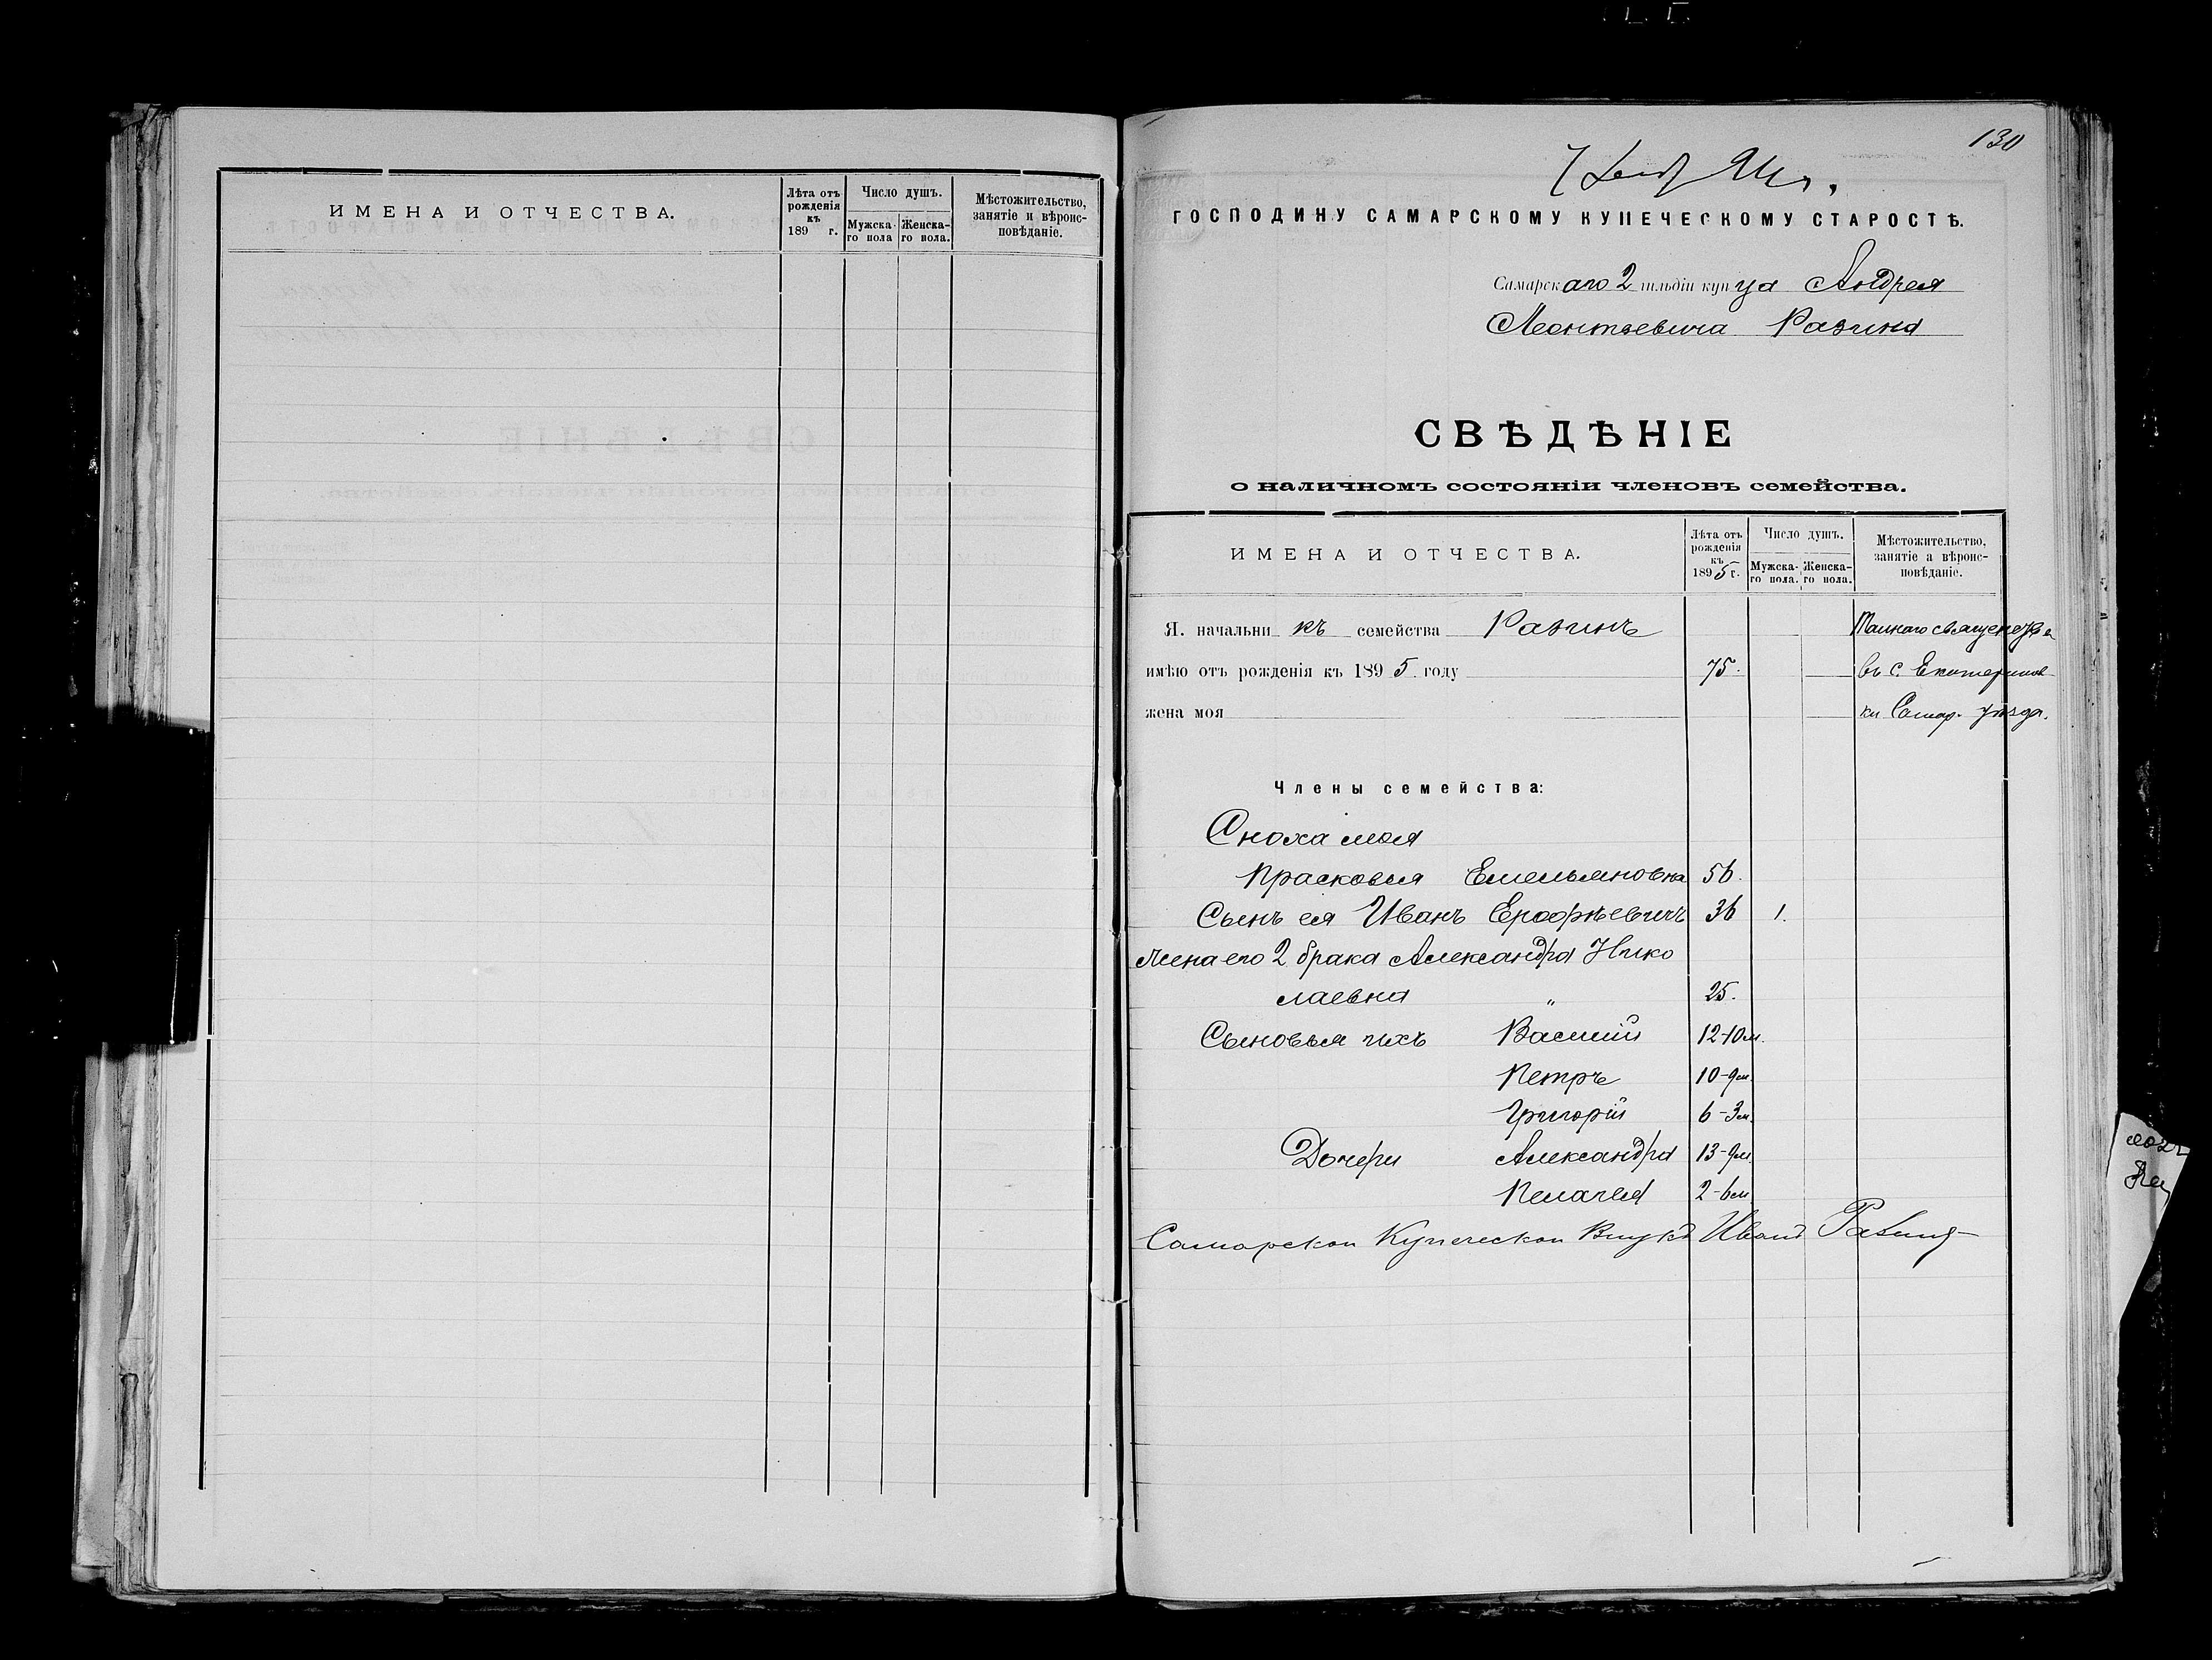 ИМЕНА И ОТЧЕСТВА.
Лѣта отъ рожденія къ 189 г.
Число душъ.
Мужска-го пола
Женска-го пола.
Мѣстожительство, занятіе и вѣроис-повѣданіе.
130
ГОСПОДИНУ САМАРСКОМУ КУПЕЧЕСКОМУ СТАРОСТѢ.
Самарскаго 2 гильдіи купца Андрея
Леонтьевича Разина
СВѢДѢНІЕ
о наличномъ состояніи членовъ семейства.
ИМЕНА И ОТЧЕСТВА.
Лѣта отъ рожденія къ 1895 г.
Число душъ.
Мужска-го пола.
Женска-го пола.
Мѣстожительство, занятіе а вѣроис-повѣданіе.
Я. начальникъ семейства Разинъ
имѣю отъ рожденія къ 1895 году 75. въ с. Екатеринов-
жена моя ки Самар. уѣзда.
Члены семейства:
Сноха моя
Прасковья Емельяновна 56.
Сынъ ея Иванъ Ерофѣевичъ 36 1.
Жена его 2 брака Александра Нико
лаевна " 25.
Сыновья ихъ Василій 12-10м.
Петръ 10-9м.
Григорій 6-3м.
Дочери Александра 13-9м.
Пелагея 2-6м.
Самарской Купеческой Внукъ Иванъ Разинъ